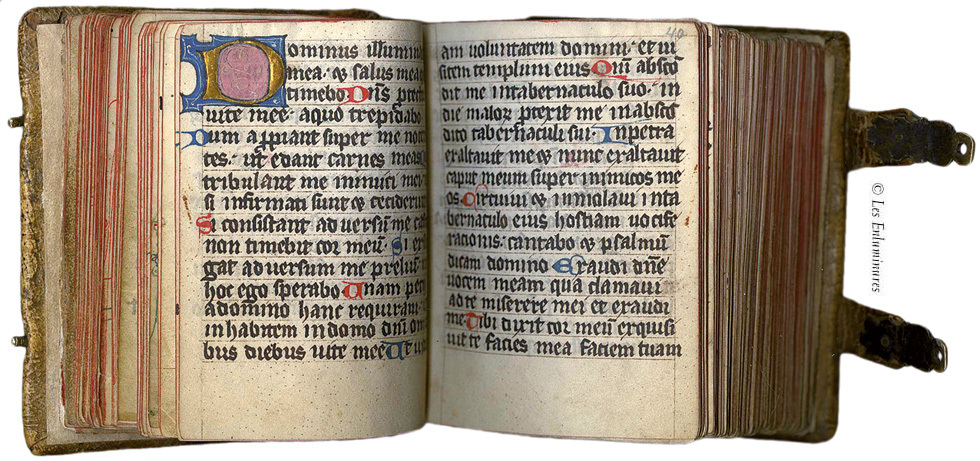 Dominus illumin
mea· & salus mea
timebo Dn̄s prote
uite mee· aquo trepidabo
Dum appiant super me noce
tes· ut edant carnes meas
tribulant me inimici mei
si infirmati sunt & ceciderut
Si consistant adversū me cas
non timebit cor meū· Si ex
gat adversum me preliu
hoc ego sperabo Unam peti
adomino hanc requiram·
inhabitem indomo dn̄i om
bus diebus uite mee Ut ui
40
am voluntatem domini· et ui
sitem templum eius Qm̄ absco
dit me intabernaculo suo· in
die malor pterit me inabsco
dito tabernaculi sui· Inpetra
exaltavit me & nunc exaltavit
caput meum super inimicos me
os· Circuiui & inmolaui inta
bernaculo eius hostiam uocife
rationis· cantabo & psalmū
dicam domino Exaudi dn̄e
vocem meam qua clamavi
adte miserere mei et exaudi
me Tibi dixit cor meū exquisi
uit te facies mea faciem tuam
© Les Enluminures